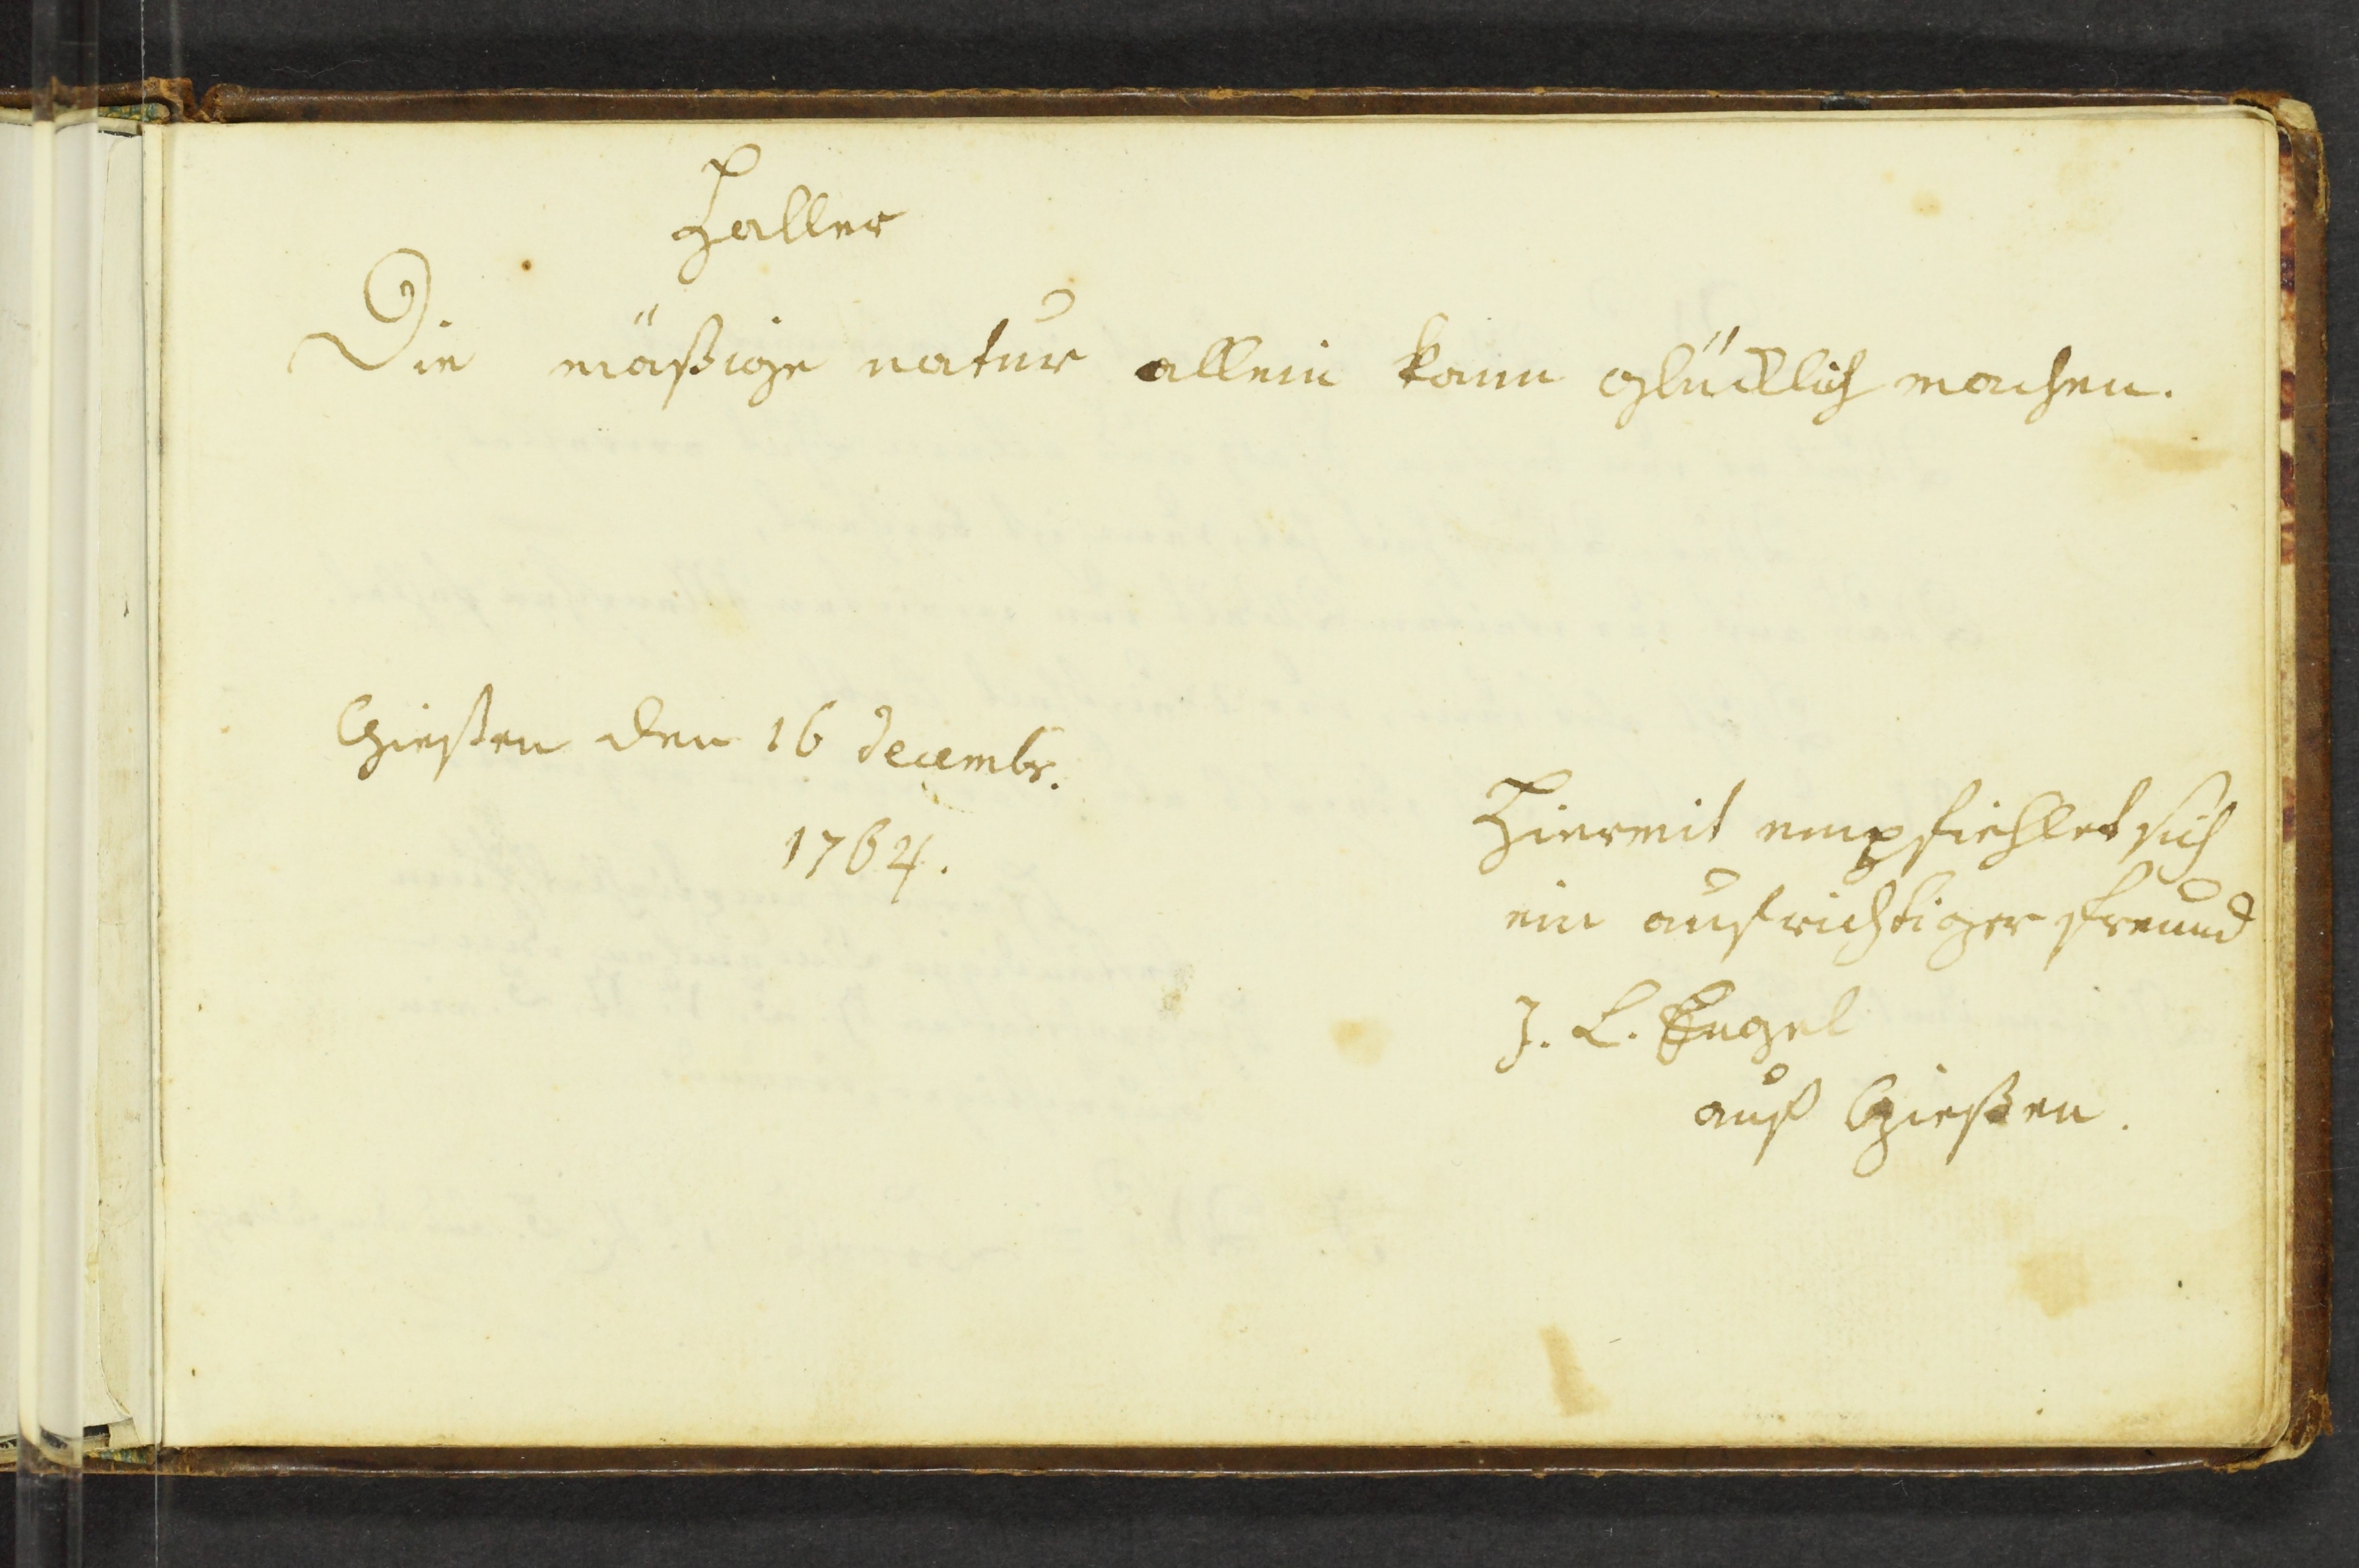 Haller
Die mäßige natur allein kann glücklich machen.
Gießen den 16 decembr.
1764.
Hiermit empfiehlet sich
ein aufrichtiger freund
J. L. Engel
auß Gießen.